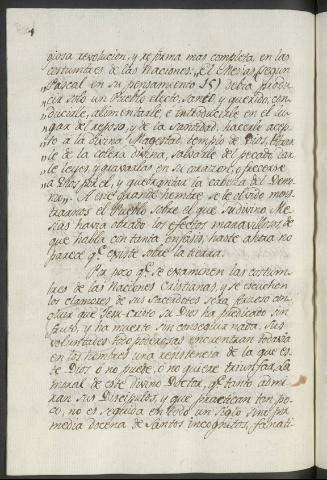 giosa revolucion, y reforma mas completa en las
costumbres de las Naciones: „El Mesias (segun
„Pascal en su pensamiento 15) debia produ
„cir solo un Pueblo electo, santo, y querido, con
„ducirle, alimentarle, è introducirle en el lu
„gar del reposo, y de la santidad, hacerle acep
„to à la divina Magestad, templo de Dios,
„le de la colera divina, salvarle del pecado, dar
„le leyes y gravarlas en su corazon, ofrecerse
„à Dios por el, y quebrantar la cabeza del Demo
„nio„. A este grande hombre se le olvidó mos
trarnos el Pueblo sobre el que su divino Me
sias havia obrado los efectos maravillosos de
que habla con tanta enfasis; hasta ahora no
parece qe. existe sobre la tierra.
Por poco qe. se examinen las costum
bres de las Naciones Cristianas, y se escuchen
los clamores de sus Sacerdotes serà forzoso con
cluir que Jesu-Cristo su Dios ha predicado sin
fruto, y ha muerto sin conseguir nada. Sus
voluntades todo poderosas encuentran todavia
en los hombres una resistencia de la que es
te Dios ò no puede, ò no quiere triunfar. La
moral de este Divino Doctor, qe. tanto admi
ran sus Discipulos, y que practican tan po
co, no es seguida en todo un siglo sino por
media docena de Santos incognitos, fanati-